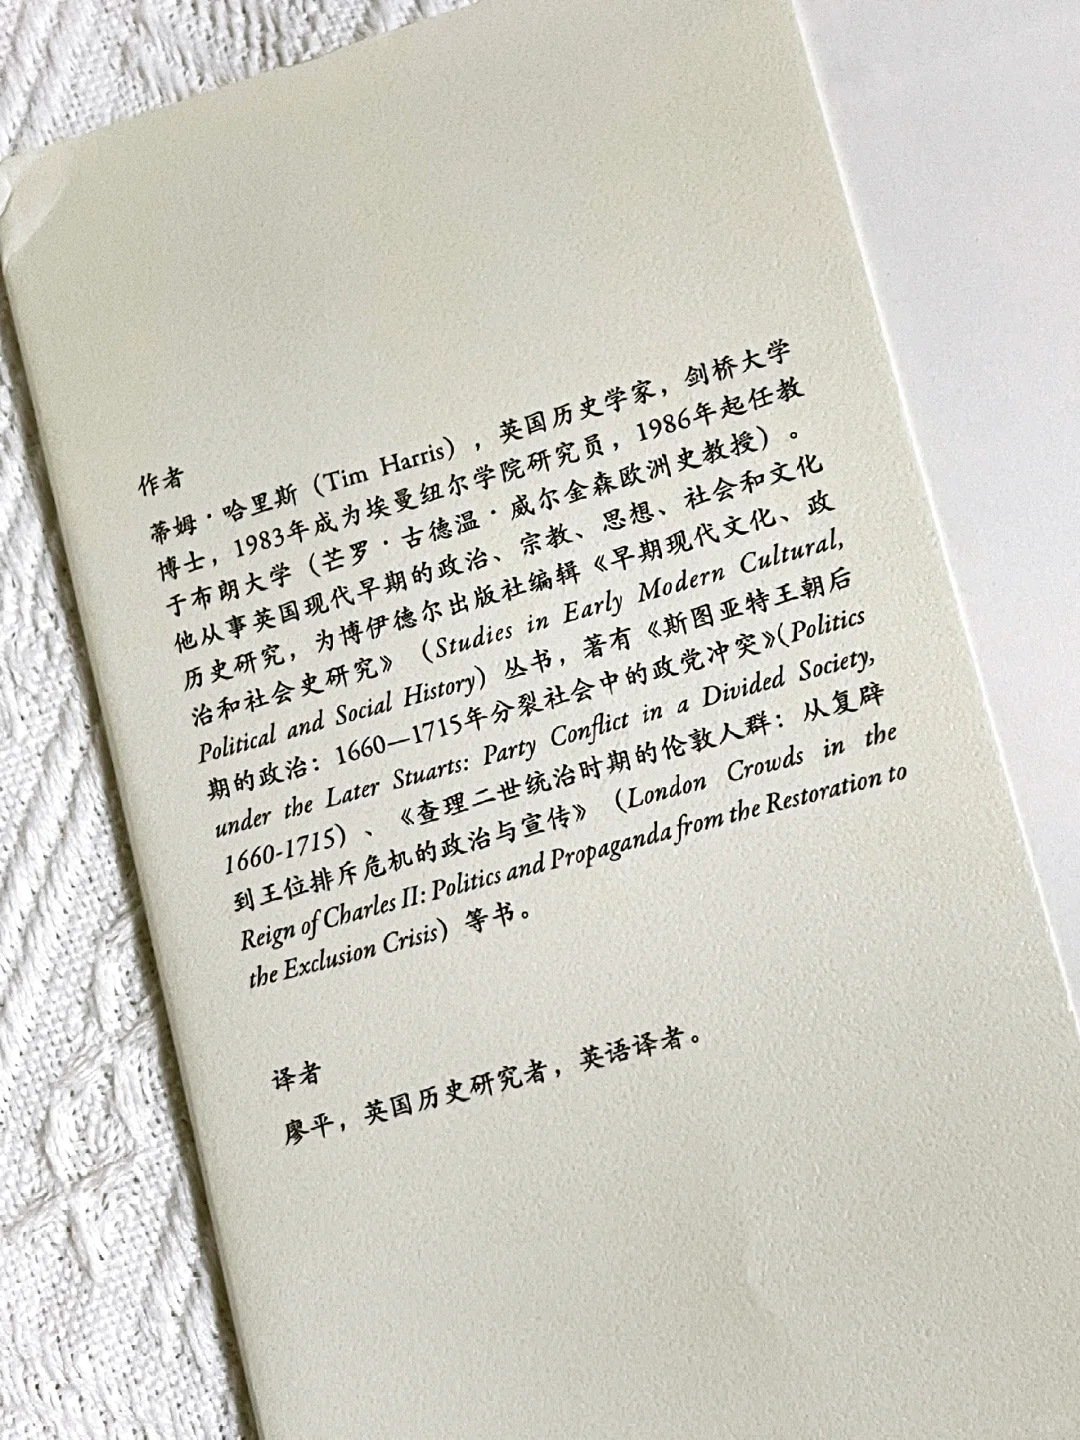 作者
蒂姆·哈里斯（Tim Harris），英国历史学家，剑桥大学
博士，1983年成为埃曼纽尔学院研究员，1986年起任教
于布朗大学（芒罗·古德温·威尔金森欧洲史教授）。
他从事英国现代早期的政治、宗教、思想、社会和文化
历史研究，为博伊德尔出版社编辑《早期现代文化、政
治和社会史研究》（Studies in Early Modern Cultural,
Political and Social History）丛书，著有《斯图亚特王朝后
期的政治：1660—1715年分裂社会中的政党冲突》（Politics
under the Later Stuarts: Party Conflict in a Divided Society,
1660-1715）、《查理二世统治时期的伦敦人群：从复辟
到王位排斥危机的政治与宣传》（London Crowds in the
Reign of Charles II: Politics and Propaganda from the Restoration to
the Exclusion Crisis）等书。
译者
廖平，英国历史研究者，英语译者。